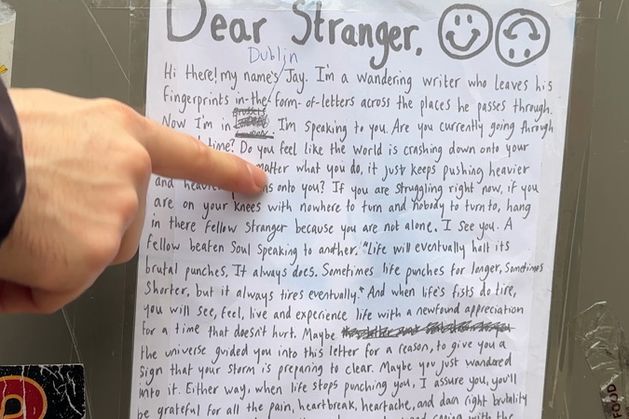 Dear Stranger,
Dublin
Hi there! my name's Jay. I'm a wandering writer who leaves his
fingerprints in-the-form-of-letters across the places he passes through.
Now I'm in I'm speaking to you. Are you currently going through
time? Do you feel like the world is crashing down onto your
matter what you do, it just keeps pushing heavier
and onto you? If you are struggling right now, if you
are on your knees with nowhere to turn and nobody to turn to, hang
in there fellow stranger because you are not alone. I see you. A
fellow beaten Soul speaking to another. "Life will eventually halt its
brutal punches. It always does. Sometimes life punches for longer, Sometimes
Shorter, but it always tires eventually." And when life's fists do tire,
you will see, feel, live and experience life with a newfound appreciation
for a time that doesn't hurt. Maybe
the universe guided you into this letter for a reason, to give you a
sign that your storm is preparing to clear. Maybe you just wandered
into it. Either way, when life stops punching you, I assure you, you'll
be grateful for all the pain, heartbreak, heartache, and damn right brutality